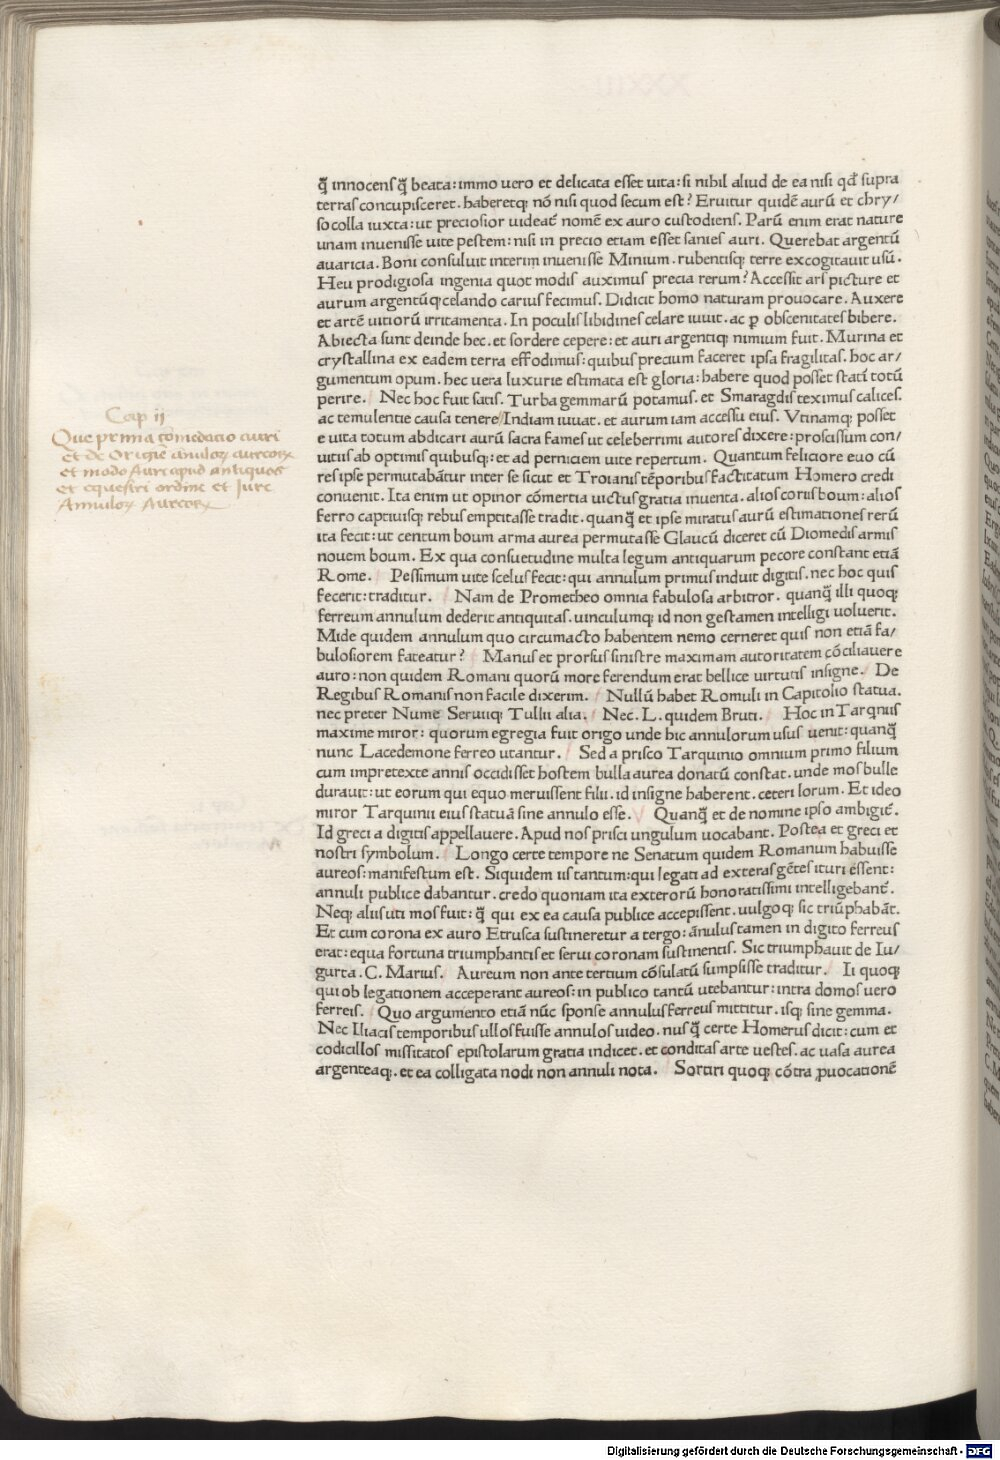 Cap ii
Que prima cōmēdatio auri
et de Origīe anulorꝝ aureorꝝ
et modo Auri apud antiquos
et equestri ordine et Jure
Annulorꝝ Aureorꝝ
ꝗ̃ innocenſ ꝗ̃ beata: immo uero et delicata eſſet uita: ſi nihil aliud de ea niſi qď ſupra
terraſ concupiſceret. haberetqꝫ nō niſi quod ſecum eſt? Eruitur quidē aurū et chry/
ſocolla iuxta: ut precioſior uideať nomē ex auro cuſtodienſ. Parū enim erat nature
unam inueniſſe uite peſtem: niſi in precio etiam eſſet ſanieſ auri. Querebat argentū
auaricia. Boni conſuluit interim inueniſſe Minium. rubentiſqꝫ terre excogitauit uſū.
Heu prodigioſa ingenia quot modiſ auximuſ precia rerum? Acceſſit arſ picture et
aurum argentūqꝫ celando cariuſ fecimuſ. Didicit homo naturam prouocare. Auxere
et artē uitiorū irritamenta. In poculiſ libidineſ celare iuuit. ac ꝑ obſcenitateſ bibere.
Abiecta ſunt deinde hec. et ſordere cepere: et auri argentiqꝫ nimium fuit. Murina et
cryſtallina ex eadem terra effodimuſ: quibuſ precium faceret ipſa fragilitaſ. hoc ar/
gumentum opum. hec uera luxurie eſtimata eſt gloria: habere quod poſſet ſtatī totū
perire. Nec hoc fuit ſatiſ. Turba gemmarū potamuſ. et Smaragdiſ teximuſ caliceſ.
ac temulentie cauſa tenere Indiam iuuat. et aurum iam acceſſu eiuſ. Vtinamqꝫ poſſet
e uita totum abdicari aurū ſacra fameſ ut celeberrimi autoreſ dixere: proſciſſum con/
uitiiſ ab optimiſ quibuſqꝫ: et ad perniciem uite repertum. Quantum feliciore euo cū
reſ ipſe permutabātur inter ſe ſicut et Troianiſ tēporibuſ factitatum Homero credi
conuenit. Ita enim ut opinor cōmertia uictuſ gratia inuenta. alioſ coriiſ boum: alioſ
ferro captiuiſqꝫ rebuſ emptitaſſe tradit. quanꝗ̃ et ipſe miratuſ aurū eſtimationeſ rerū
ita fecit: ut centum boum arma aurea permutaſſe Glaucū diceret cū Diomediſ armiſ
nouem boum. Ex qua conſuetudine multa legum antiquarum pecore conſtant etiā
Rome. Peſſimum uite ſceluſ fecit: qui annulum primuſ induit digitiſ. nec hoc quiſ
fecerit: traditur. Nam de Prometheo omnia fabuloſa arbitror. quanꝗ̃ illi quoqꝫ
ferreum annulum dederit antiquitaſ. uinculumqꝫ id non geſtamen intelligi uoluerit.
Mide quidem annulum quo circumacto habentem nemo cerneret quiſ non etiā fa/
buloſiorem fateatur? Manuſ et prorſuſ ſiniſtre maximam autoritatem cōciliauere
auro: non quidem Romani quorū more ferendum erat bellice uirtutiſ inſigne. De
Regibuſ Romaniſ non facile dixerim. Nullū habet Romuli in Capitolio ſtatua.
nec preter Nume Seruiiqꝫ Tullii alia. Nec. L. quidem Bruti. Hoc in Tarqniiſ
maxime miror: quorum egregia fuit origo unde hic annulorum uſuſ uenit: quanꝗ̃
nunc Lacedemone ferreo utantur. Sed a priſco Tarquinio omnium primo filium
cum in pretexte anniſ occidiſſet hoſtem bulla aurea donatū conſtat. unde moſ bulle
durauit: ut eorum qui equo meruiſſent filii. id inſigne haberent. ceteri lorum. Et ideo
miror Tarquinii eiuſ ſtatuā ſine annulo eſſe. Quanꝗ̃ et de nomine ipſo ambigiť.
Id greci a digitiſ appellauere. Apud noſ priſci ungulum uocabant. Poſtea et greci et
noſtri ſymbolum. Longo certe tempore ne Senatum quidem Romanum habuiſſe
aureoſ: manifeſtum eſt. Siquidem iiſ tantum: qui legati ad exteraſ gēteſ ituri eſſent:
annuli publice dabantur. credo quoniam ita exterorū honoratiſſimi intelligebanť.
Neqꝫ aliiſ uti moſ fuit: ꝗ̃ qui ex ea cauſa publice accepiſſent. uulgoqꝫ ſic triūphabāt.
Et cum corona ex auro Etruſca ſuſtineretur a tergo: ānuluſ tamen in digito ferreuſ
erat: equa fortuna triumphantiſ et ſerui coronam ſuſtinentiſ. Sic triumphauit de Iu/
gurta. C. Mariuſ. Aureum non ante tertium cōſulatū ſumpſiſſe traditur. Ii quoqꝫ
qui ob legationem acceperant aureoſ: in publico tantū utebantur: intra domoſ uero
ferreiſ. Quo argumento etiā nūc ſponſe annuluſ ferreuſ mittitur. iſqꝫ ſine gemma.
Nec Iliaciſ temporibuſ ulloſ fuiſſe annuloſ uideo. nuſꝗ̃ certe Homeruſ dicit: cum et
codicilloſ miſſitatoſ epiſtolarum gratia indicet. et conditaſ arte ueſteſ. ac uaſa aurea
argenteaqꝫ. et ea colligata nodi non annuli nota. Sortiri quoqꝫ cōtra ꝓuocationē
Digitalisierung gefördert durch die Deutsche Forschungsgemeinschaft - DFG